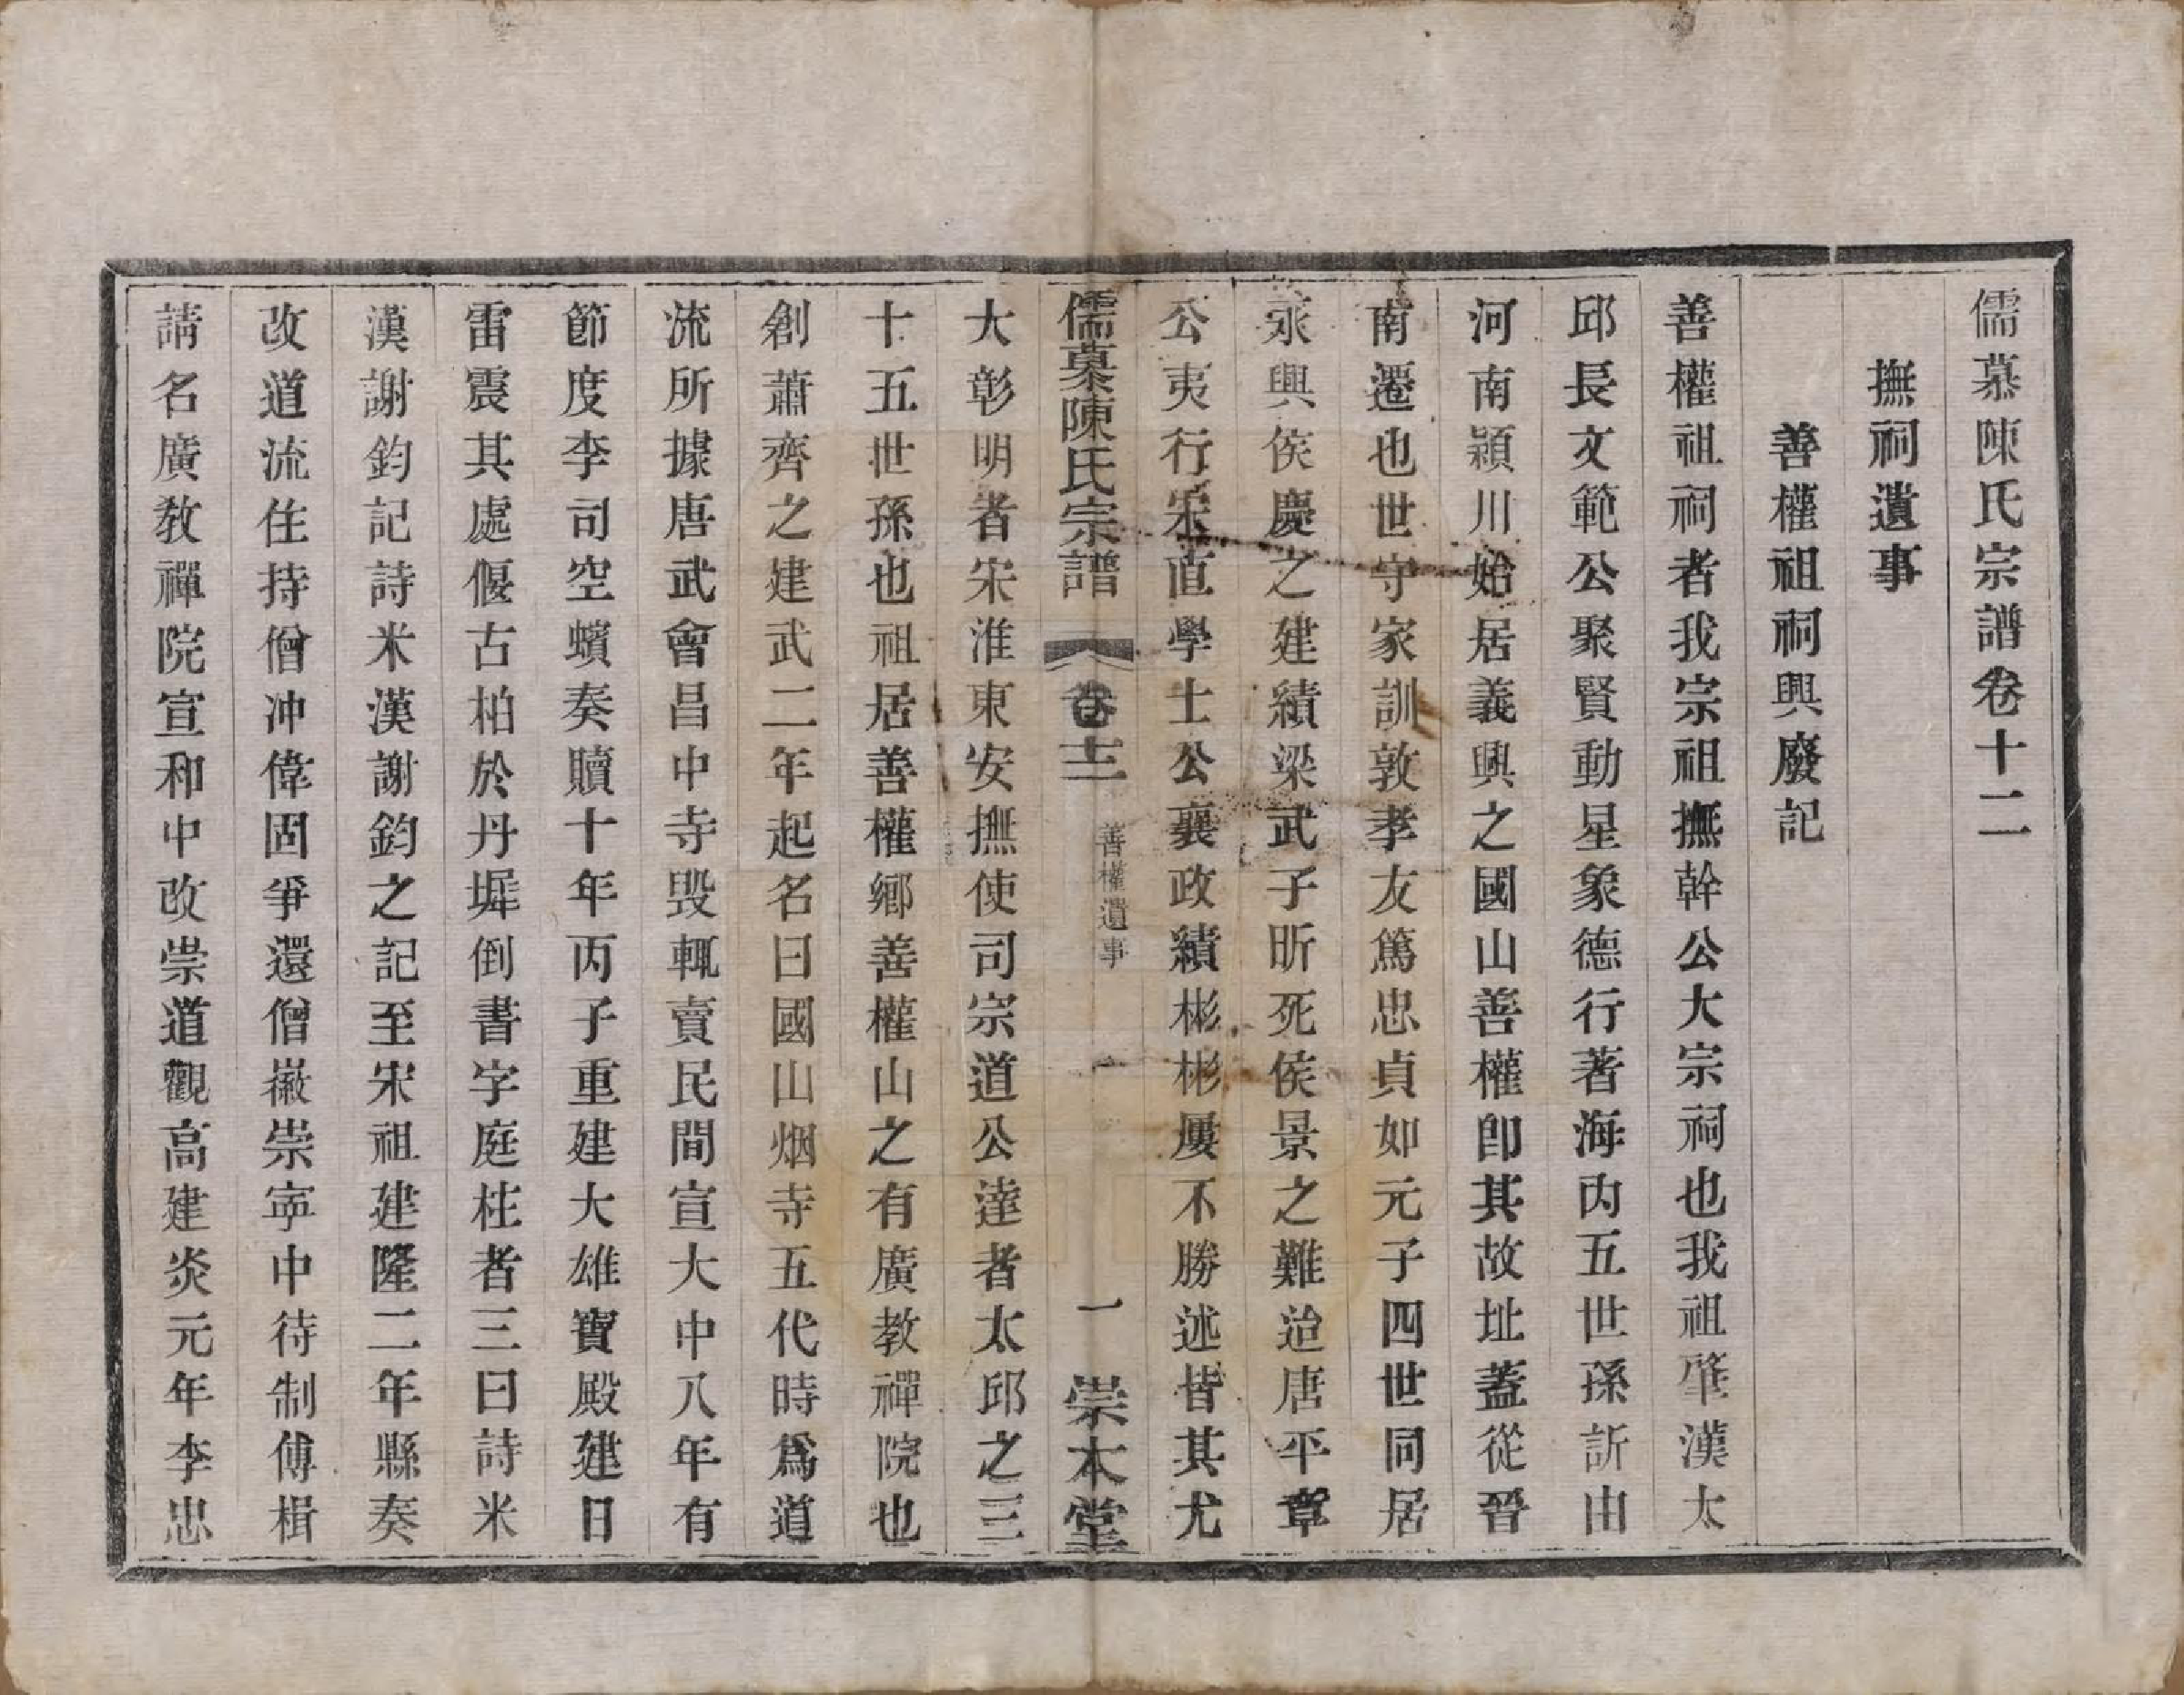 儒慕陳氏宗譜卷十二
撫祠遺事
善權祖祠興廢記
善權祖祠者我宗祖撫幹公大宗祠也我祖肇漢太
邱長文範公聚賢動星象德行著海內五世孫訢由
河南潁川始居義興之國山善權卽其故址蓋從晉
南遷也世守家訓敦孝友篤忠貞如元子四世同居
永興侯慶之建績梁武子昕死侯景之難迨唐平章
公夷行宋直學士公襄政績彬彬屢不勝述皆其尤
儒慕陳氏宗譜 卷十二 善權遺事 一 崇本堂
大彰明者宋淮東安撫使司宗道公達者太邱之三
十五世孫也祖居善權鄉善權山之有廣教禪院也
創蕭齊之建武二年起名曰國山烟寺五代時爲道
流所據唐武會昌中寺毀輒賣民間宣大中八年有
節度李司空蠙奏贖十年丙子重建大雄寶殿建日
雷震其處偃古柏於丹墀倒書字庭柱者三曰詩米
漢謝鈞記詩米漢謝鈞之記至宋祖建隆二年縣奏
改道流住持僧冲偉固爭還僧徽崇寧中待制傅楫
請名廣教禪院宣和中改崇道觀高建炎元年李忠